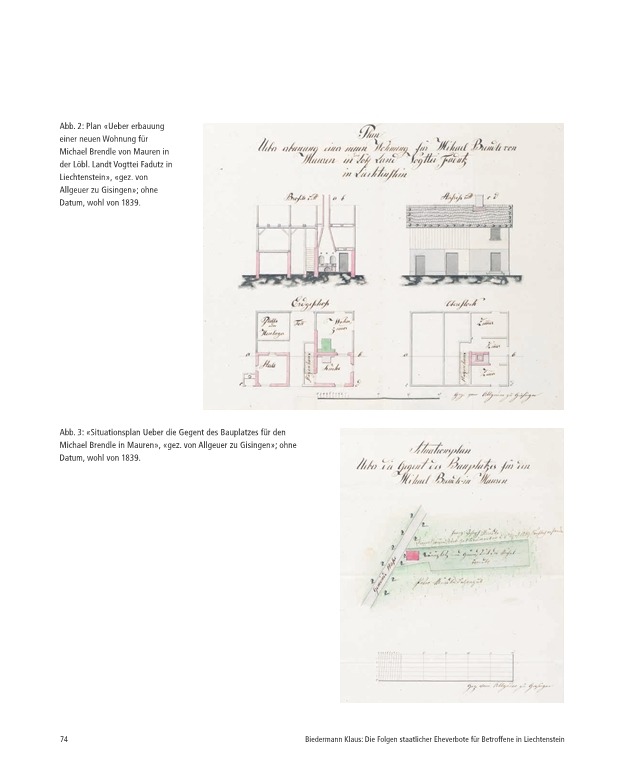 Abb. 2: Plan «Ueber erbauung
einer neuen Wohnung für
Michael Brendle von Mauren in
der Löbl. Landt Vogttei Fadutz in
Liechtenstein», «gez. von
Allgeuer zu Gisingen»; ohne
Datum, wohl von 1839.
Plan
Ueber erbauung einer neuen Wohnung für Michael Brendle von
Mauren in Löbl. Land Vogttei Fadutz
in Liechtenstein
Erdgeschoss
Oberstock
Tell
Stall
Küche
Zimer
Zimer
Zimer
gez. von Allgeuer zu Gisingen
Abb. 3: «Situationsplan Ueber die Gegent des Bauplatzes für den
Michael Brendle in Mauren», «gez. von Allgeuer zu Gisingen»; ohne
Datum, wohl von 1839.
Situationsplan
Ueber die Gegent des Bauplatzes für den
Michael Brendle in Mauren
gez. von Allgeuer zu Gisingen
74
Biedermann Klaus: Die Folgen staatlicher Eheverbote für Betroffene in Liechtenstein